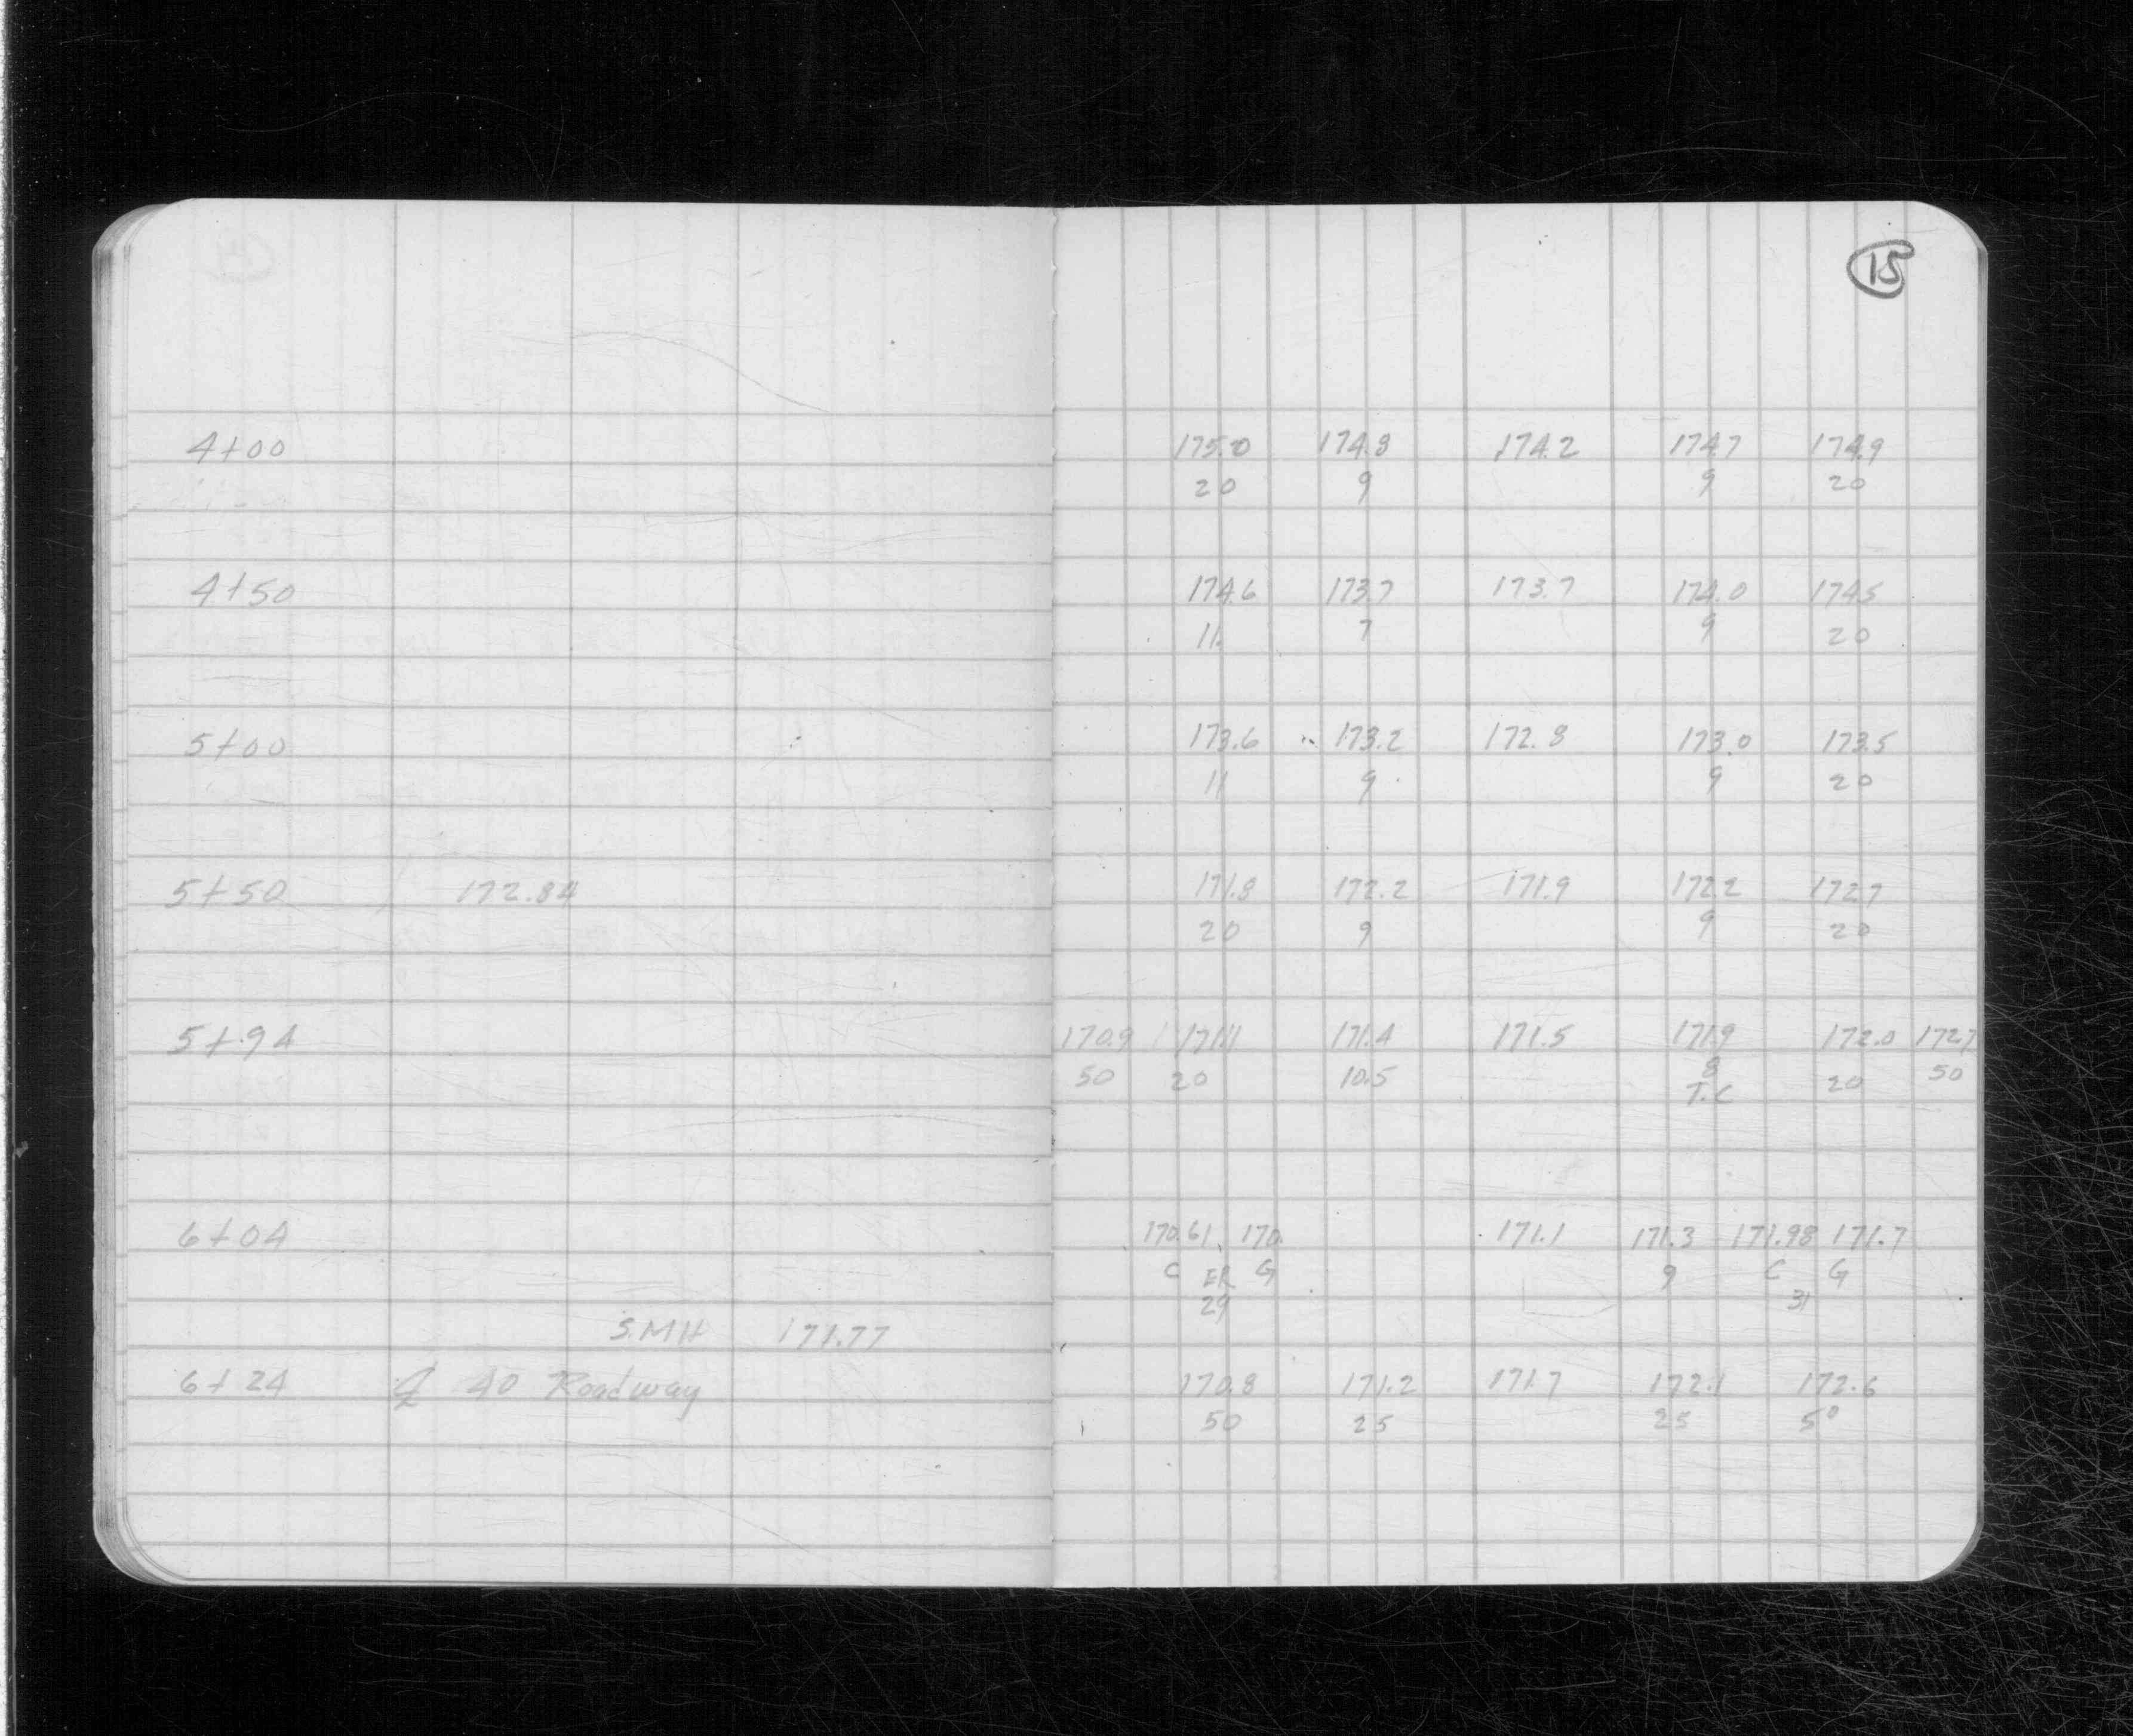 15
4+00 175.0 174.8 174.2 174.7 174.9
20 9 9 20
4+50 174.6 173.7 173.7 174.0 174.5
11 7 9 20
5+00 173.6 173.2 172.8 173.0 173.5
11 9 9 20
5+50 172.84 171.8 172.2 171.9 172.2 172.7
20 9 9 20
5+94 170.9 171.1 171.4 171.5 171.9 172.0 172.7
50 20 10.5 8 20 50
T.C
6+04 170.61 170. 171.1 171.3 171.98 171.7
C ER G 9 C G
29 31
S.MH 171.77
6+24 ℄ 40 Roadway 170.8 171.2 171.7 172.1 172.6
50 25 25 50